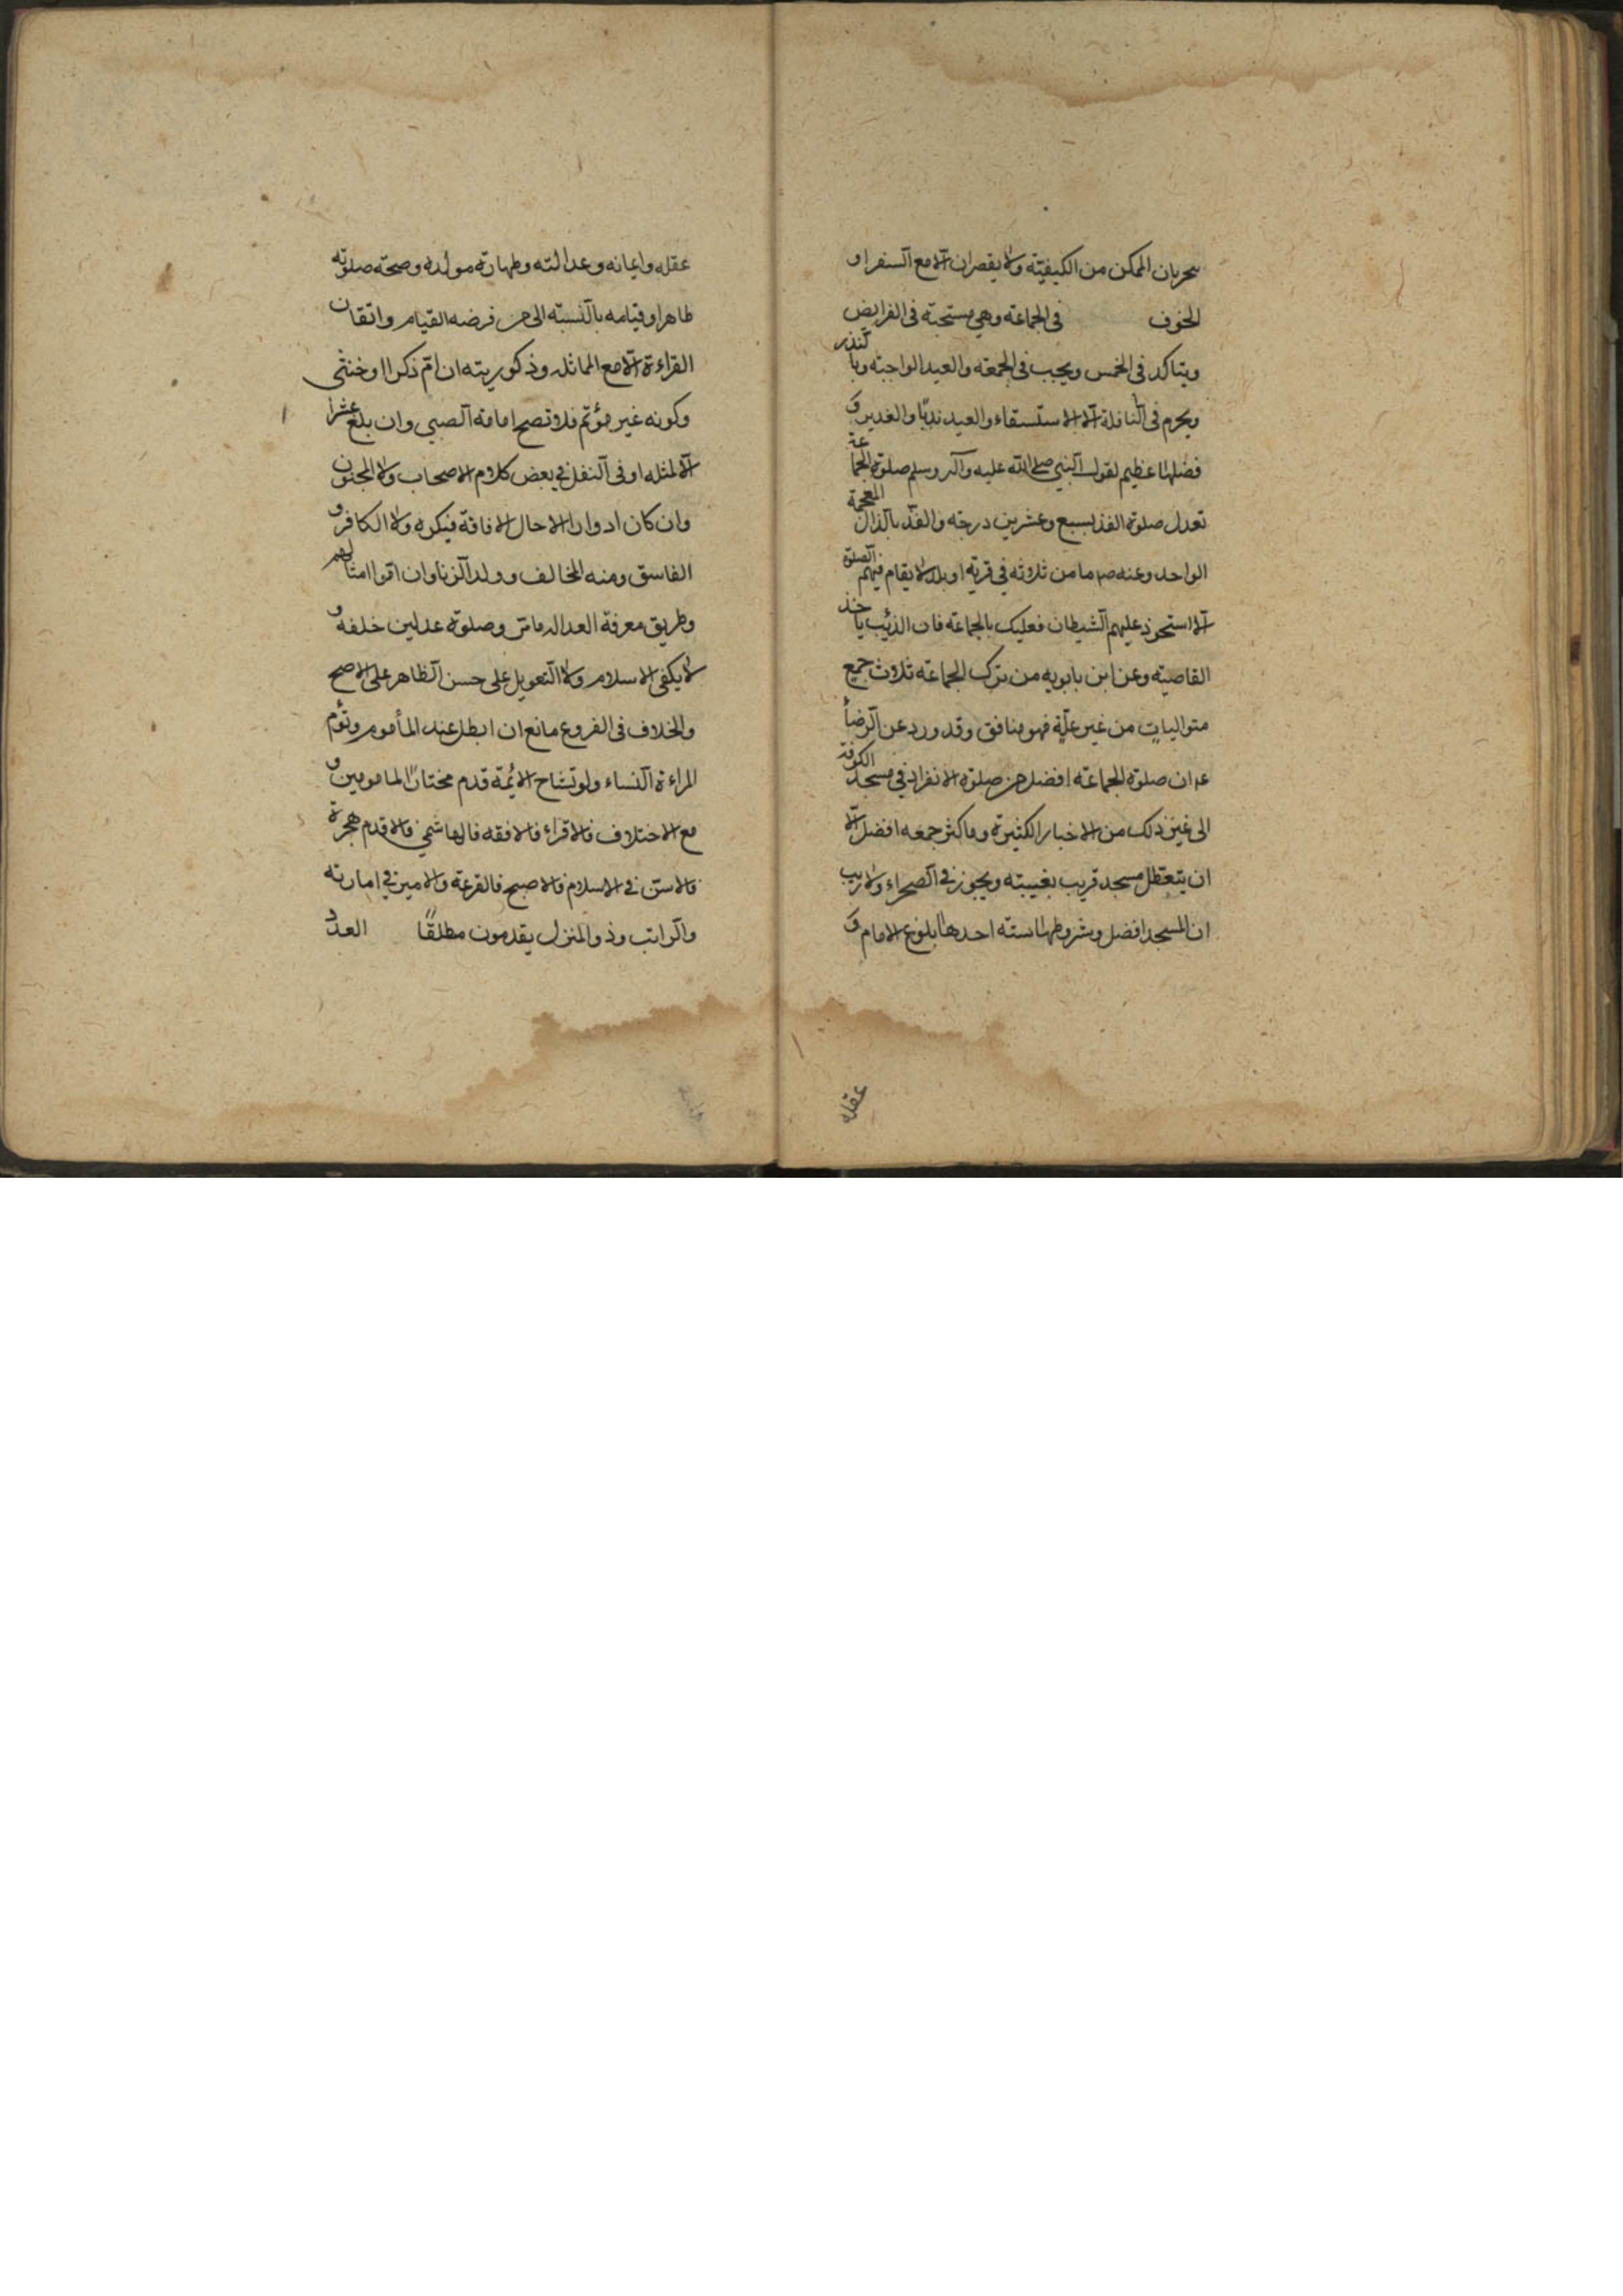 يحريان الممكن من الكيفيّة ولا يقصران الّا مع السّفر او
الخوف في الجماعة وهي مستحبّة في الفرايض
ويتاكد في الخمس ويجب في الجمعة والعيد الواجبة وبالنذر
ويحرم في النّافلة الّا الاستسقاء والعيد ندبًا والغدير و
فضلها عظيم لقول النّبي صلى اللّه عليه وآله وسلم صلوة الجماعة
تعدل صلوة الفذ بسبع وعشرين درجة والفذّ بالذّال المعجمة
الواحد وعنه ص ما من ثلاثة في قرية او بلد لا يقام فيهم الصّلوة
الّا استحوذ عليهم الشّيطان فعليك بالجماعة فان الذئب ياخذ
القاصية وعن ابن بابويه من ترك الجماعة ثلاث جمع
متوالياتٍ من غير علّة فهو منافق وقد ورد عن الرّضا
ع ان صلوة الجماعة افضل من صلوة الانفراد في مسجد الكوفة
الى غير ذلك من الاخبار الكثيرة وما كثر جمعه افضل الّا
ان يتعطل مسجد قريب بغيبته ويجوز في الصّحراء ولا ريب
ان المسجد افضل وشروطها ستة احدها بلوغ الامام و
عقله
عقله وايمانه وعدالته وطهارة مولده وصحة صلوته
ظاهرا وقيامه بالنّسبة الى من فرضه القيام واتقان
القراءة الّا مع المماثلة وذكوريته ان امّ ذكرا او خنثى
وكونه غير مؤتم فلا تصح امامة الصّبي وان بلغ عشرا
الّا لمثله او في النّفل في بعض كلام الاصحاب ولا المجنون
وان كان ادوارا الا حال الافاقة فيكره ولا الكافر و
الفاسق ومنه المخالف وولد الزّنا وان امّوا امثالهم
وطريق معرفة العدالة ما مرّ وصلوة عدلين خلفه و
لا يكفي الاسلام ولا التّعويل على حسن الظّاهر على الاصح
والخلاف في الفروع مانع ان ابطل عند المأموم وتؤم
المراءة النّساء ولو تشاح الائمّة قدم مختار المامومين و
مع الاختلاف فالاقراء فالافقه فالهاشمي فالاقدم هجرة
فالاسنّ في الاسلام فالاصبح فالقرعة والامير في امارته
والرّاتب وذو المنزل يقدمون مطلقًا العدد